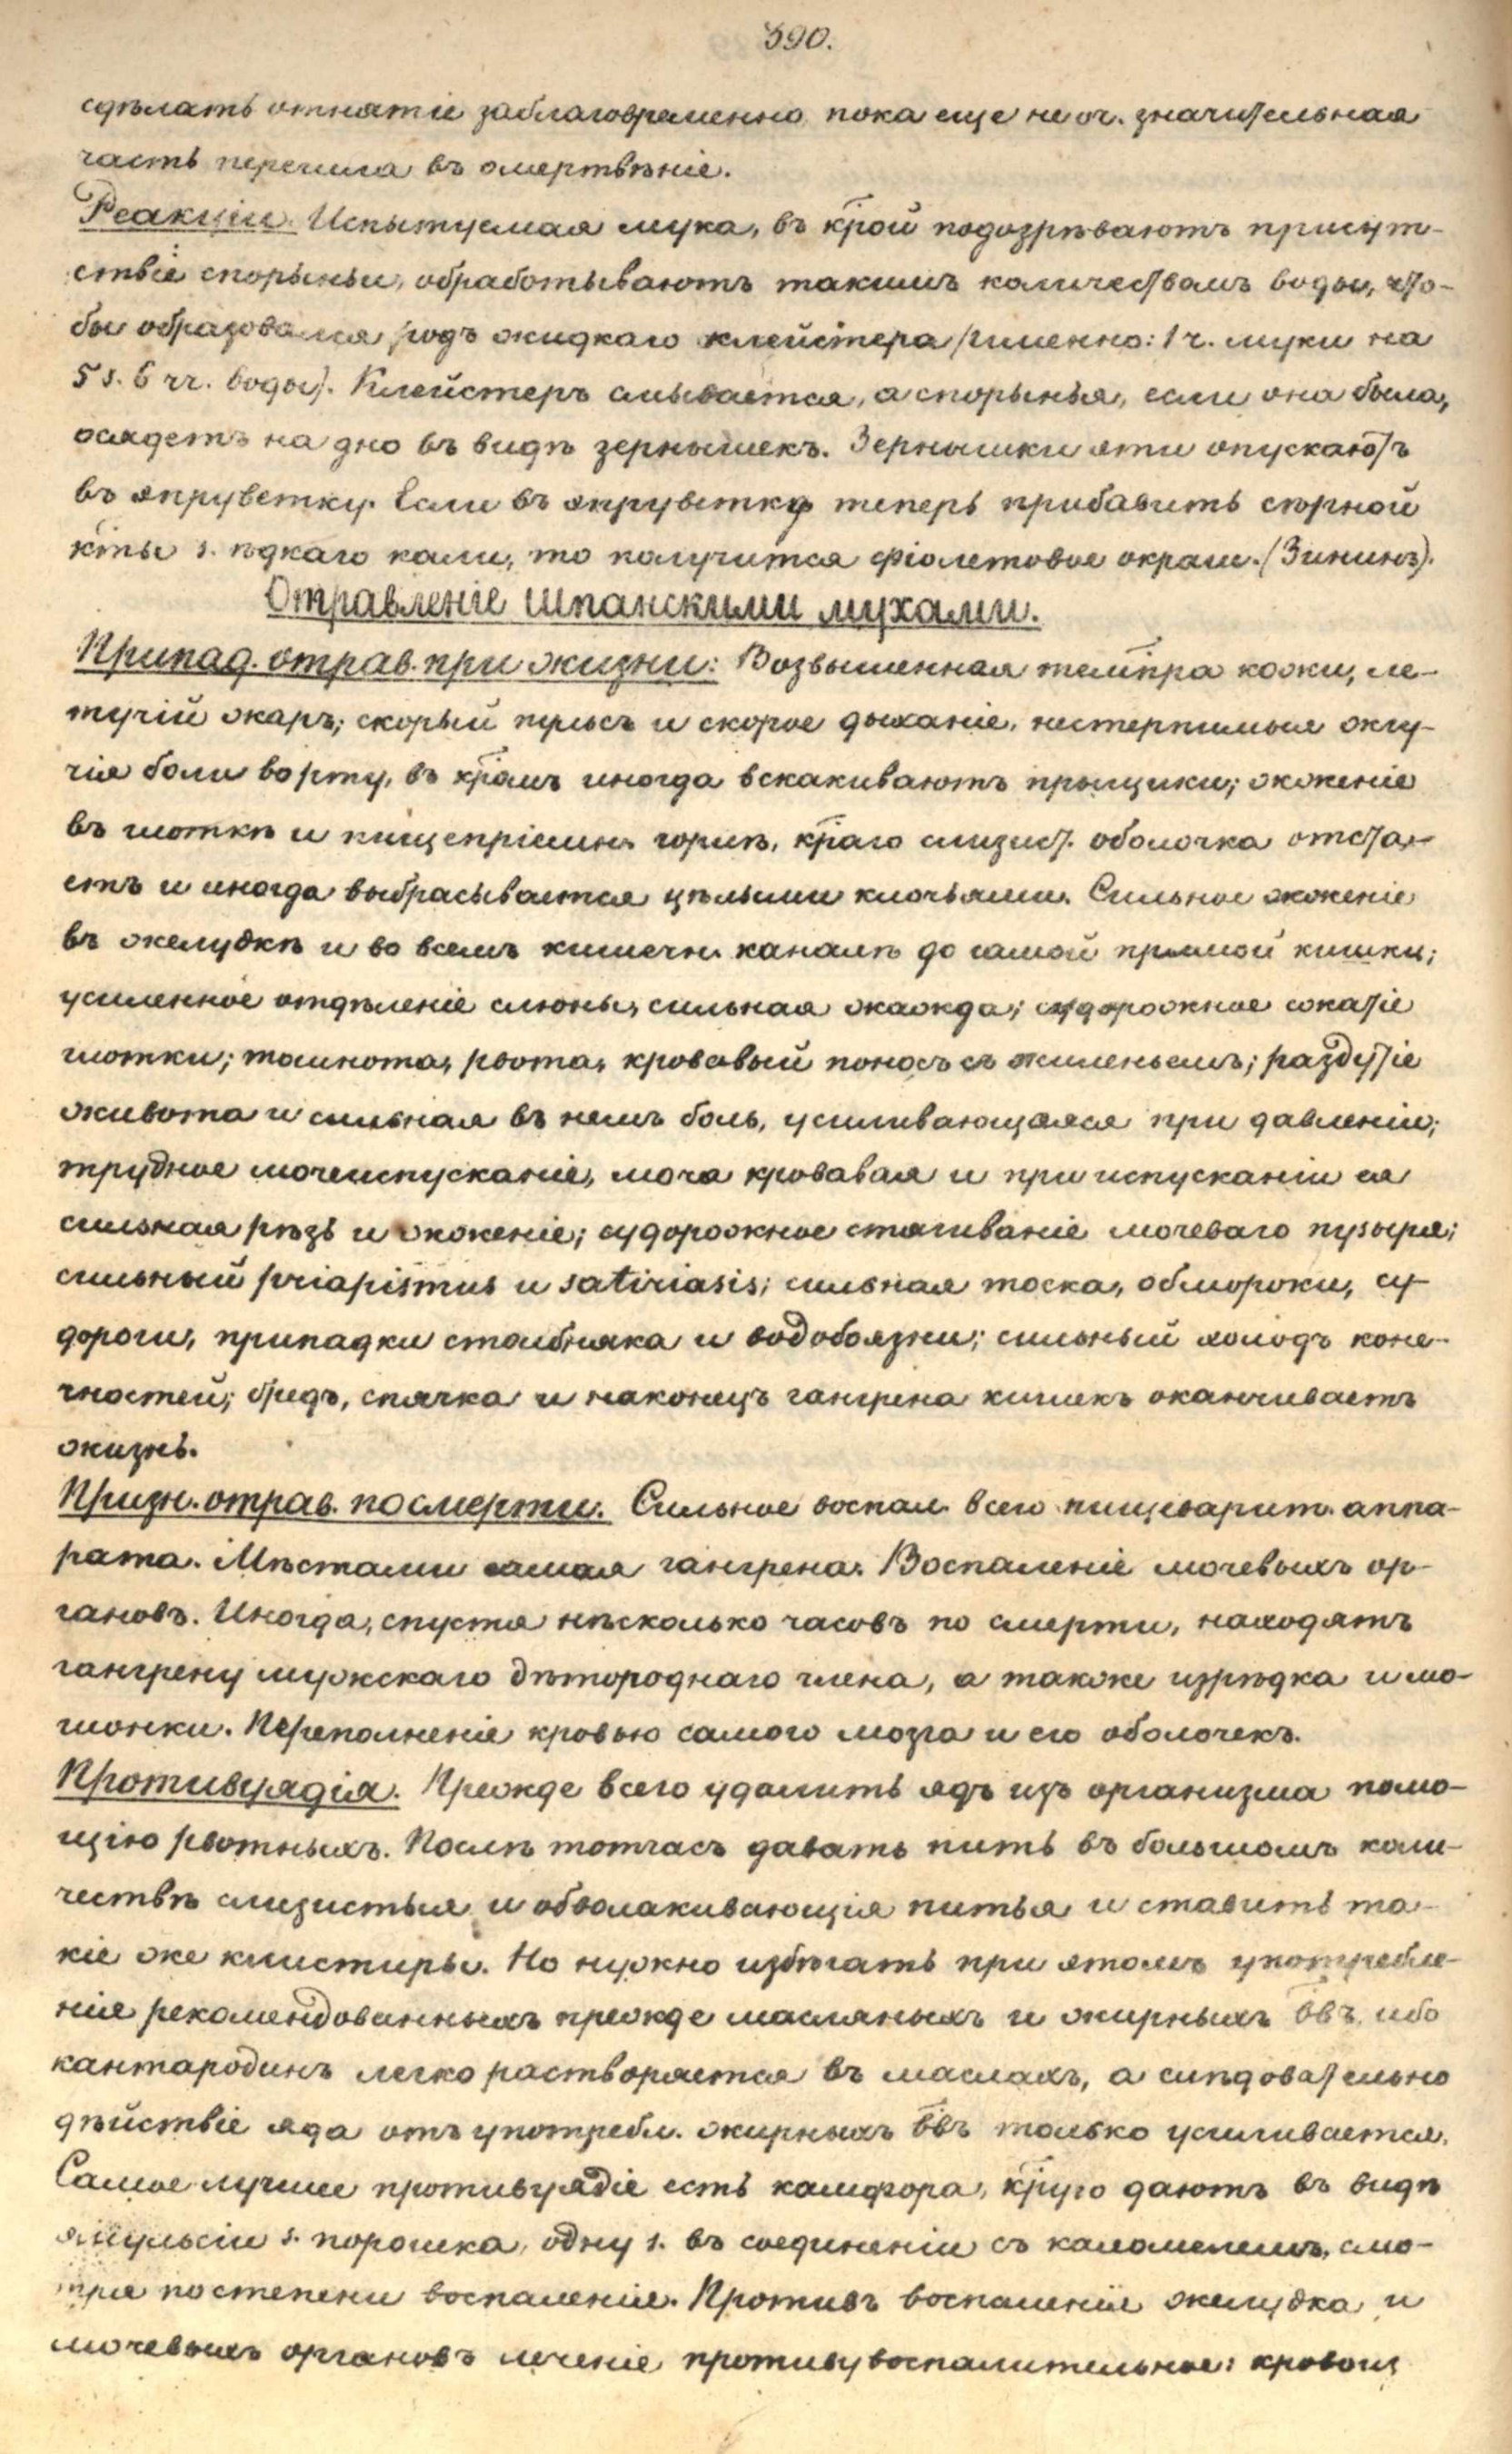 390.
сдѣлать отнятіе заблаговременно пока еще не оч. значительная
часть перешла въ омертвѣніе.
Реакціи. Испытуемая мука, въ крой подозрѣваютъ присут-
ствіе спорыньи, обработываютъ такимъ количествомъ воды, что-
бы образовался родъ жидкаго клейстера (именно: 1 ч. муки на
5 s. 6 чч. воды). Клейстеръ смывается, а спорынья, если она была,
осядетъ на дно въ видѣ зернышекъ. Зернышки эти опускаютъ
въ эпруветку. Если въ эпруветку теперь прибавить сѣрной
кты s. ѣдкаго кали, то получится фіолетовое окраш. (Зининъ).
Отравленіе шпанскими мухами.
Припад. отрав. при жизни: Возвышенная темпра кожи, ле-
тучій жаръ; скорый пульсъ и скорое дыханіе, нестерпимыя жгу-
чія боли во рту, въ кромъ иногда вскакиваютъ прыщики; жженіе
въ глоткѣ и пищепріемн. горлѣ, краго слизист. оболочка отста-
етъ и иногда выбрасывается цѣлыми клочьями. Сильное жженіе
въ желудкѣ и во всемъ кишечн. каналѣ до самой прямой кишки;
усиленное отдѣленіе слюны, сильная жажда; судорожное сжатіе
глотки; тошнота, рвота, кровавый поносъ съ жиленьемъ; раздутіе
живота и сильная въ немъ боль, усиливающаяся при давленіи;
трудное мочеиспусканіе, моча кровавая и при испусканіи ея
сильная рѣзь и жженіе; судорожное стягиваніе мочеваго пузыря;
сильный priapismus и satiriasis; сильная тоска, обмороки, су-
дороги, припадки столбняка и водобоязни; сильный холодъ коне-
чностей; бредъ, спячка и наконецъ гангрена кишекъ оканчиваетъ
жизнь.
Призн. отрав. по смерти. Сильное воспал. всего пищеварит. аппа-
рата. Мѣстами самая гангрена. Воспаленіе мочевыхъ ор-
гановъ. Иногда, спустя нѣсколько часовъ по смерти, находятъ
гангрену мужскаго дѣтороднаго члена, а также изрѣдка и мо-
шонки. Переполненіе кровью самого мозга и его оболочекъ.
Противуядія. Прежде всего удалить ядъ изъ организма помо-
щію рвотныхъ. Послѣ тотчасъ давать пить въ большомъ коли-
чествѣ слизистыя и обволакивающія питья и ставить та-
кіе же клистиры. Но нужно избѣгать при этомъ употребле-
нія рекомендованныхъ прежде масляныхъ и жирныхъ ввъ, ибо
кантародинъ легко растворяется въ маслахъ, а слѣдовательно
дѣйствіе яда отъ употребл. жирныхъ ввъ только усиливается.
Самое лучшее противуядіе есть камфора, крую даютъ въ видѣ
эмульсіи s. порошка, одну s. въ соединеніи съ каломелемъ, смо-
тря по степени воспаленія. Противъ воспаленія желудка и
мочевыхъ органовъ леченіе противувоспалительное: кровоиз